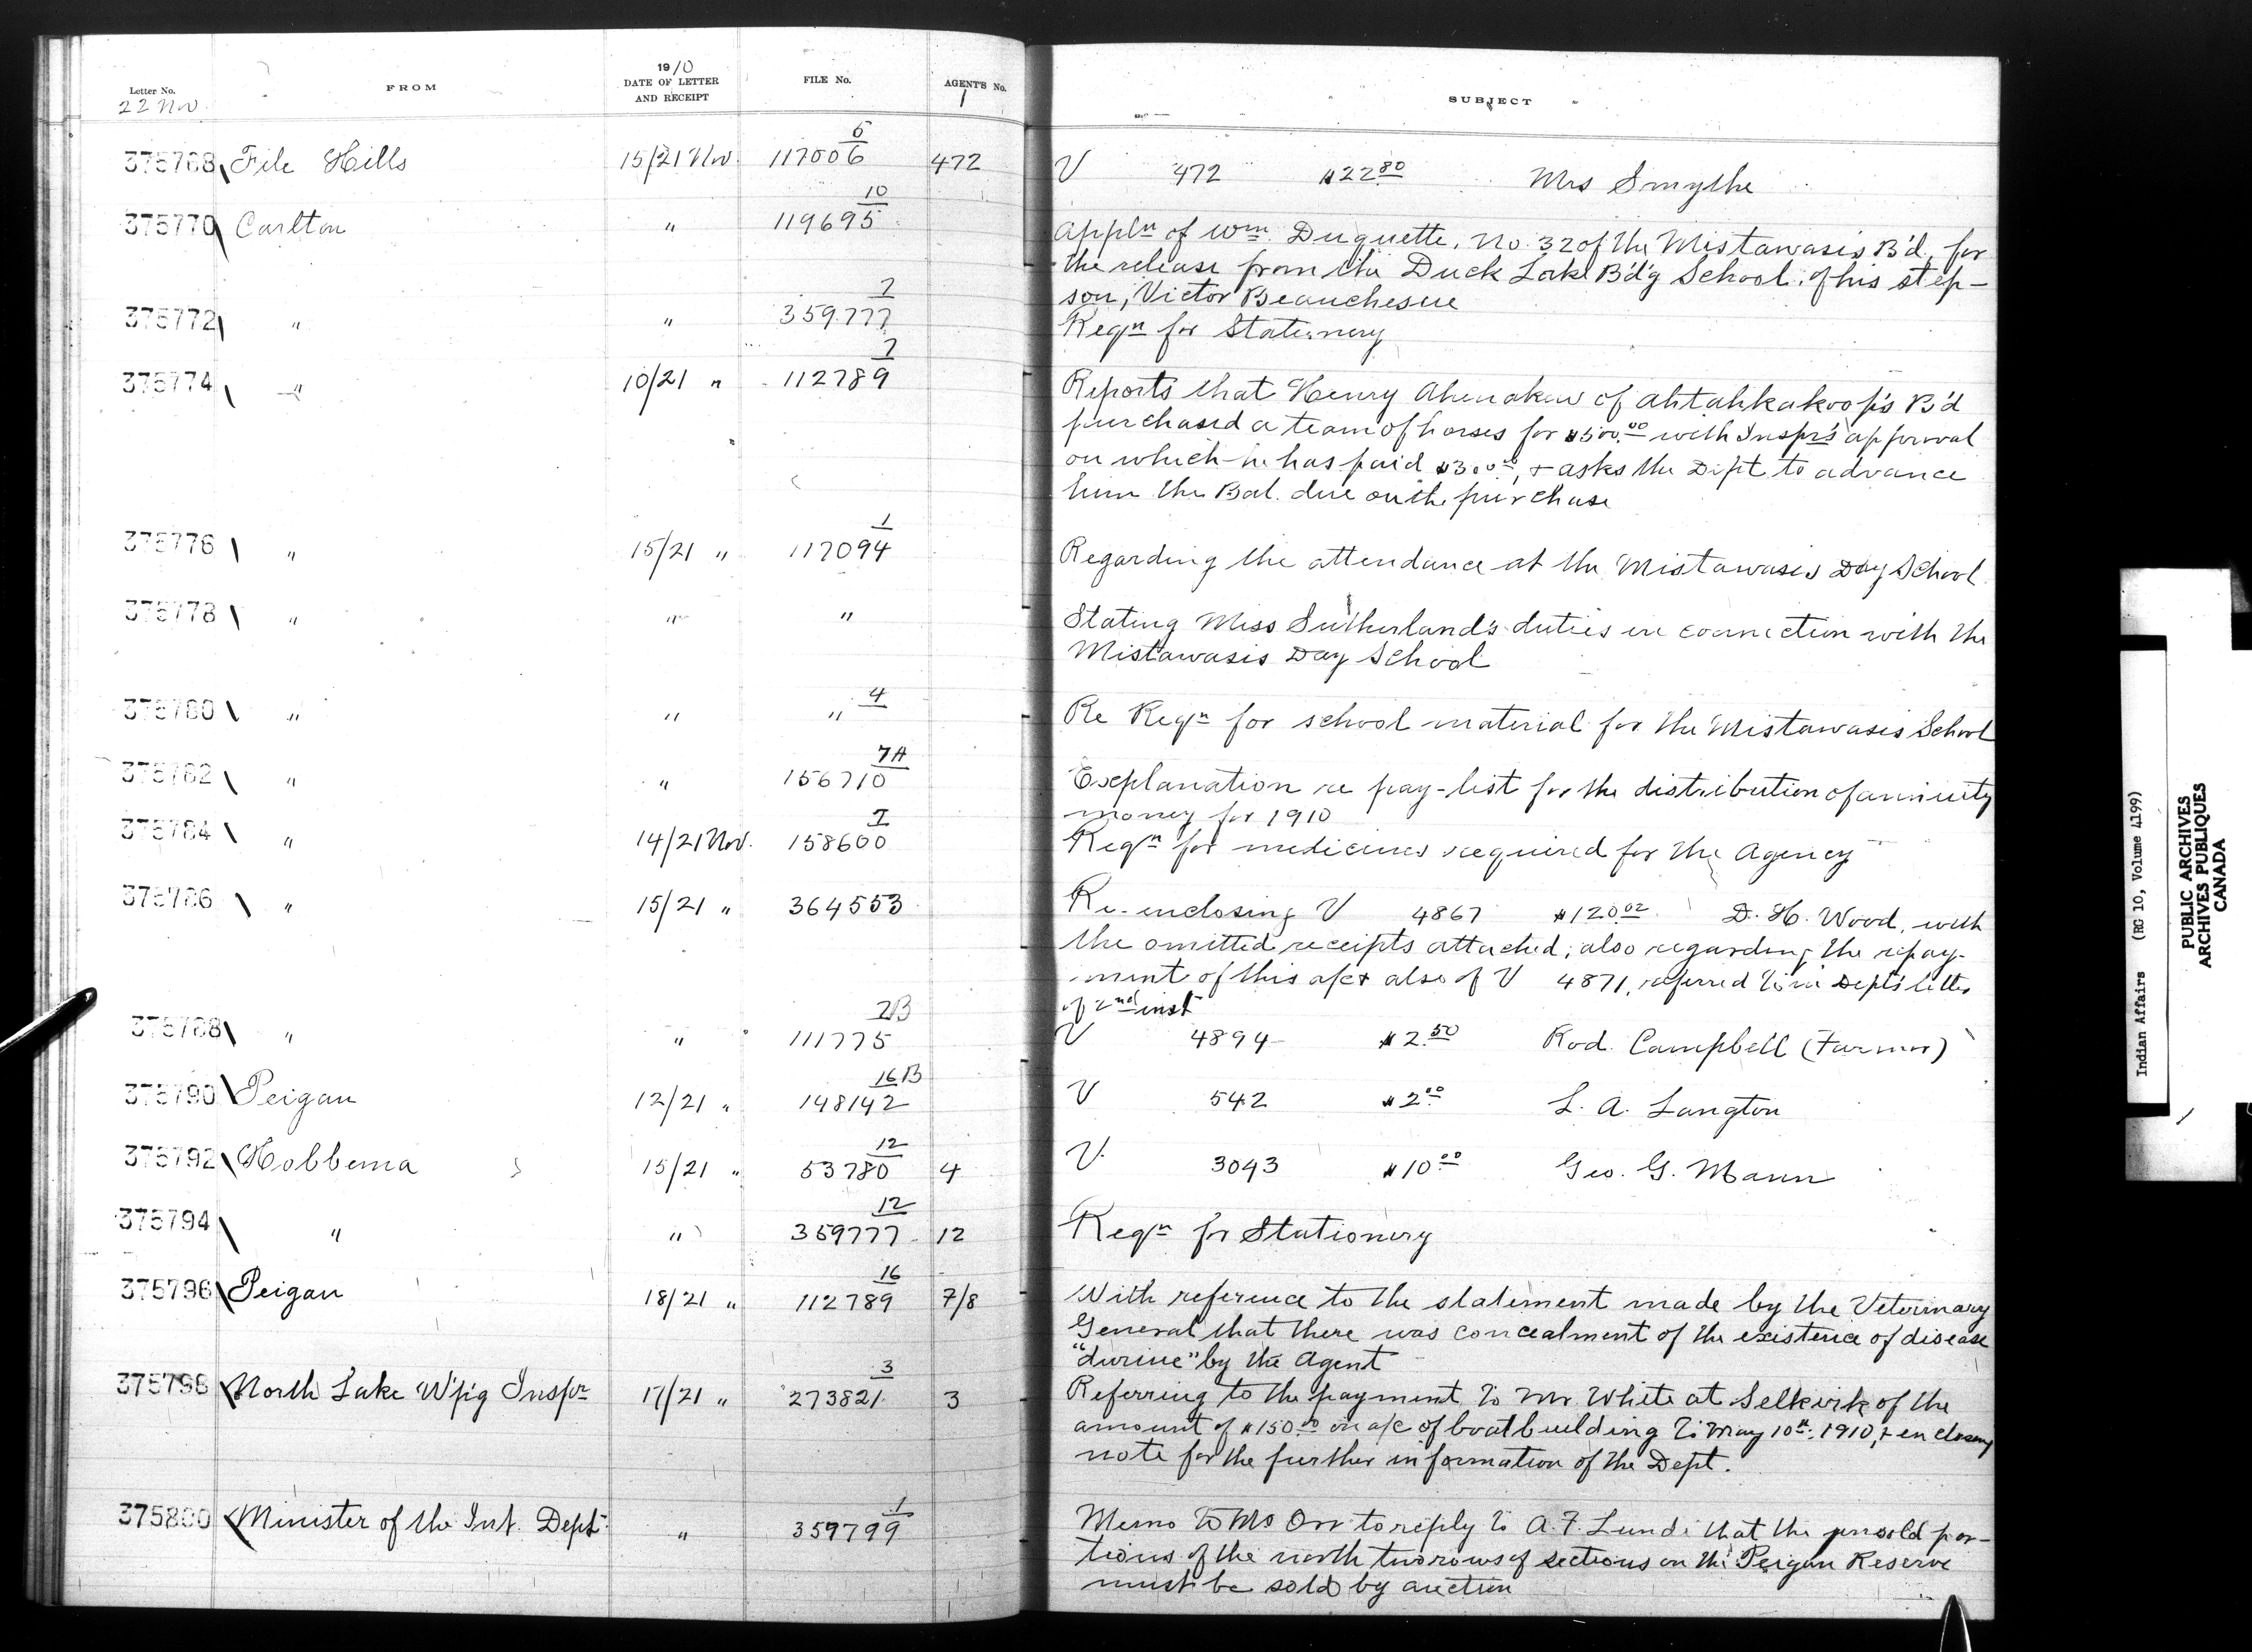 Letter No. FROM 1910 DATE OF LETTER AND RECEIPT FILE No. AGENT'S No. SUBJECT
22 Nov 1
375768 File Hills 15/21 Nov. 117006 5 472 V 472 $22.80 Mrs Smythe
375770 Carlton " 119695 10 Appln of Wm. Duquette, No. 32 of the Mistawasis B'd, for
the release from the Duck Lake B'd'g School, of his step-
son, Victor Beauchesne
375772 " " 359777 7 Reqn for Stationery
375774 " 10/21 " 112789 7 Reports that Henry Ahenakew of Ahtahkakoop's B'd
purchased a team of horses for $500.00 with Inspr's approval
on which he has paid $300.00, & asks the Dept. to advance
him the Bal. due on the purchase
375776 " 15/21 " 117094 1 Regarding the attendance at the Mistawasis Day School
375778 " " " Stating Miss Sutherland's duties in connection with the
Mistawasis Day School
375780 " " " 4 Re Reqn for school material for the Mistawasis School
375782 " " 156710 7A Explanation re pay-list for the distribution of annuity
money for 1910
375784 " 14/21 Nov. 158600 7 Reqn for medicines required for the Agency
375786 " 15/21 " 364553 Re-enclosing V 4867 $120.02 D. H. Wood, with
the omitted receipts attached; also regarding the repay-
ment of this a/c & also of V 4871, referred to in Dept's letter
of 2nd inst
375788 " " 111775 2B V 4894 $2.50 Rod. Campbell (Farmer)
375790 Peigan 12/21 " 148142 16B V 542 $2.00 L. A. Langton
375792 Hobbema 15/21 " 53780 12 4 V. 3043 $10.00 Geo. G. Mann
375794 " " 359777 12 12 Reqn for Stationery
375796 Peigan 18/21 " 112789 16 7/8 With reference to the statement made by the Veterinary
General that there was concealment of the existence of disease
"durine" by the Agent
375798 North Lake W'p'g Inspr 17/21 " 273821 3 3 Referring to the payment to Mr. White at Selkirk of the
amount of $150.00 on a/c of boat building to May 10th, 1910, & enclosing
note for the further information of the Dept.
375800 Minister of the Int. Dept. " 359799 1 Memo to Mr Orr to reply to A. F. Lund that the unsold por-
tions of the north two rows of sections on the Peigan Reserve
must be sold by auction
Indian Affairs (RG 10, Volume 4199)
PUBLIC ARCHIVES
ARCHIVES PUBLIQUES
CANADA